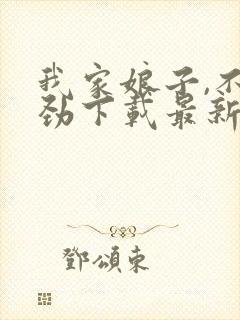 我家娘子,不
劲下载最新
鄧頌東